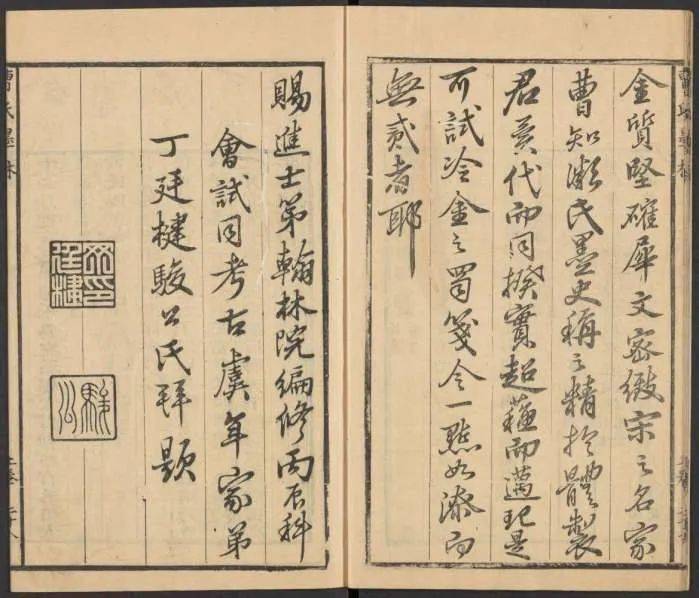 曹氏墨林
金質堅確犀文密緻宋之名家
曹知微氏墨史稱之精於體製
君異代而同揆實超而邁是
可試冷金之蜀箋令一點如漆而
無貳者耶
賜進士第翰林院編修丙辰科
會試同考古虞年家弟
丁廷楗駿公氏拜題
廷楗
駿公
曹氏墨林
上卷